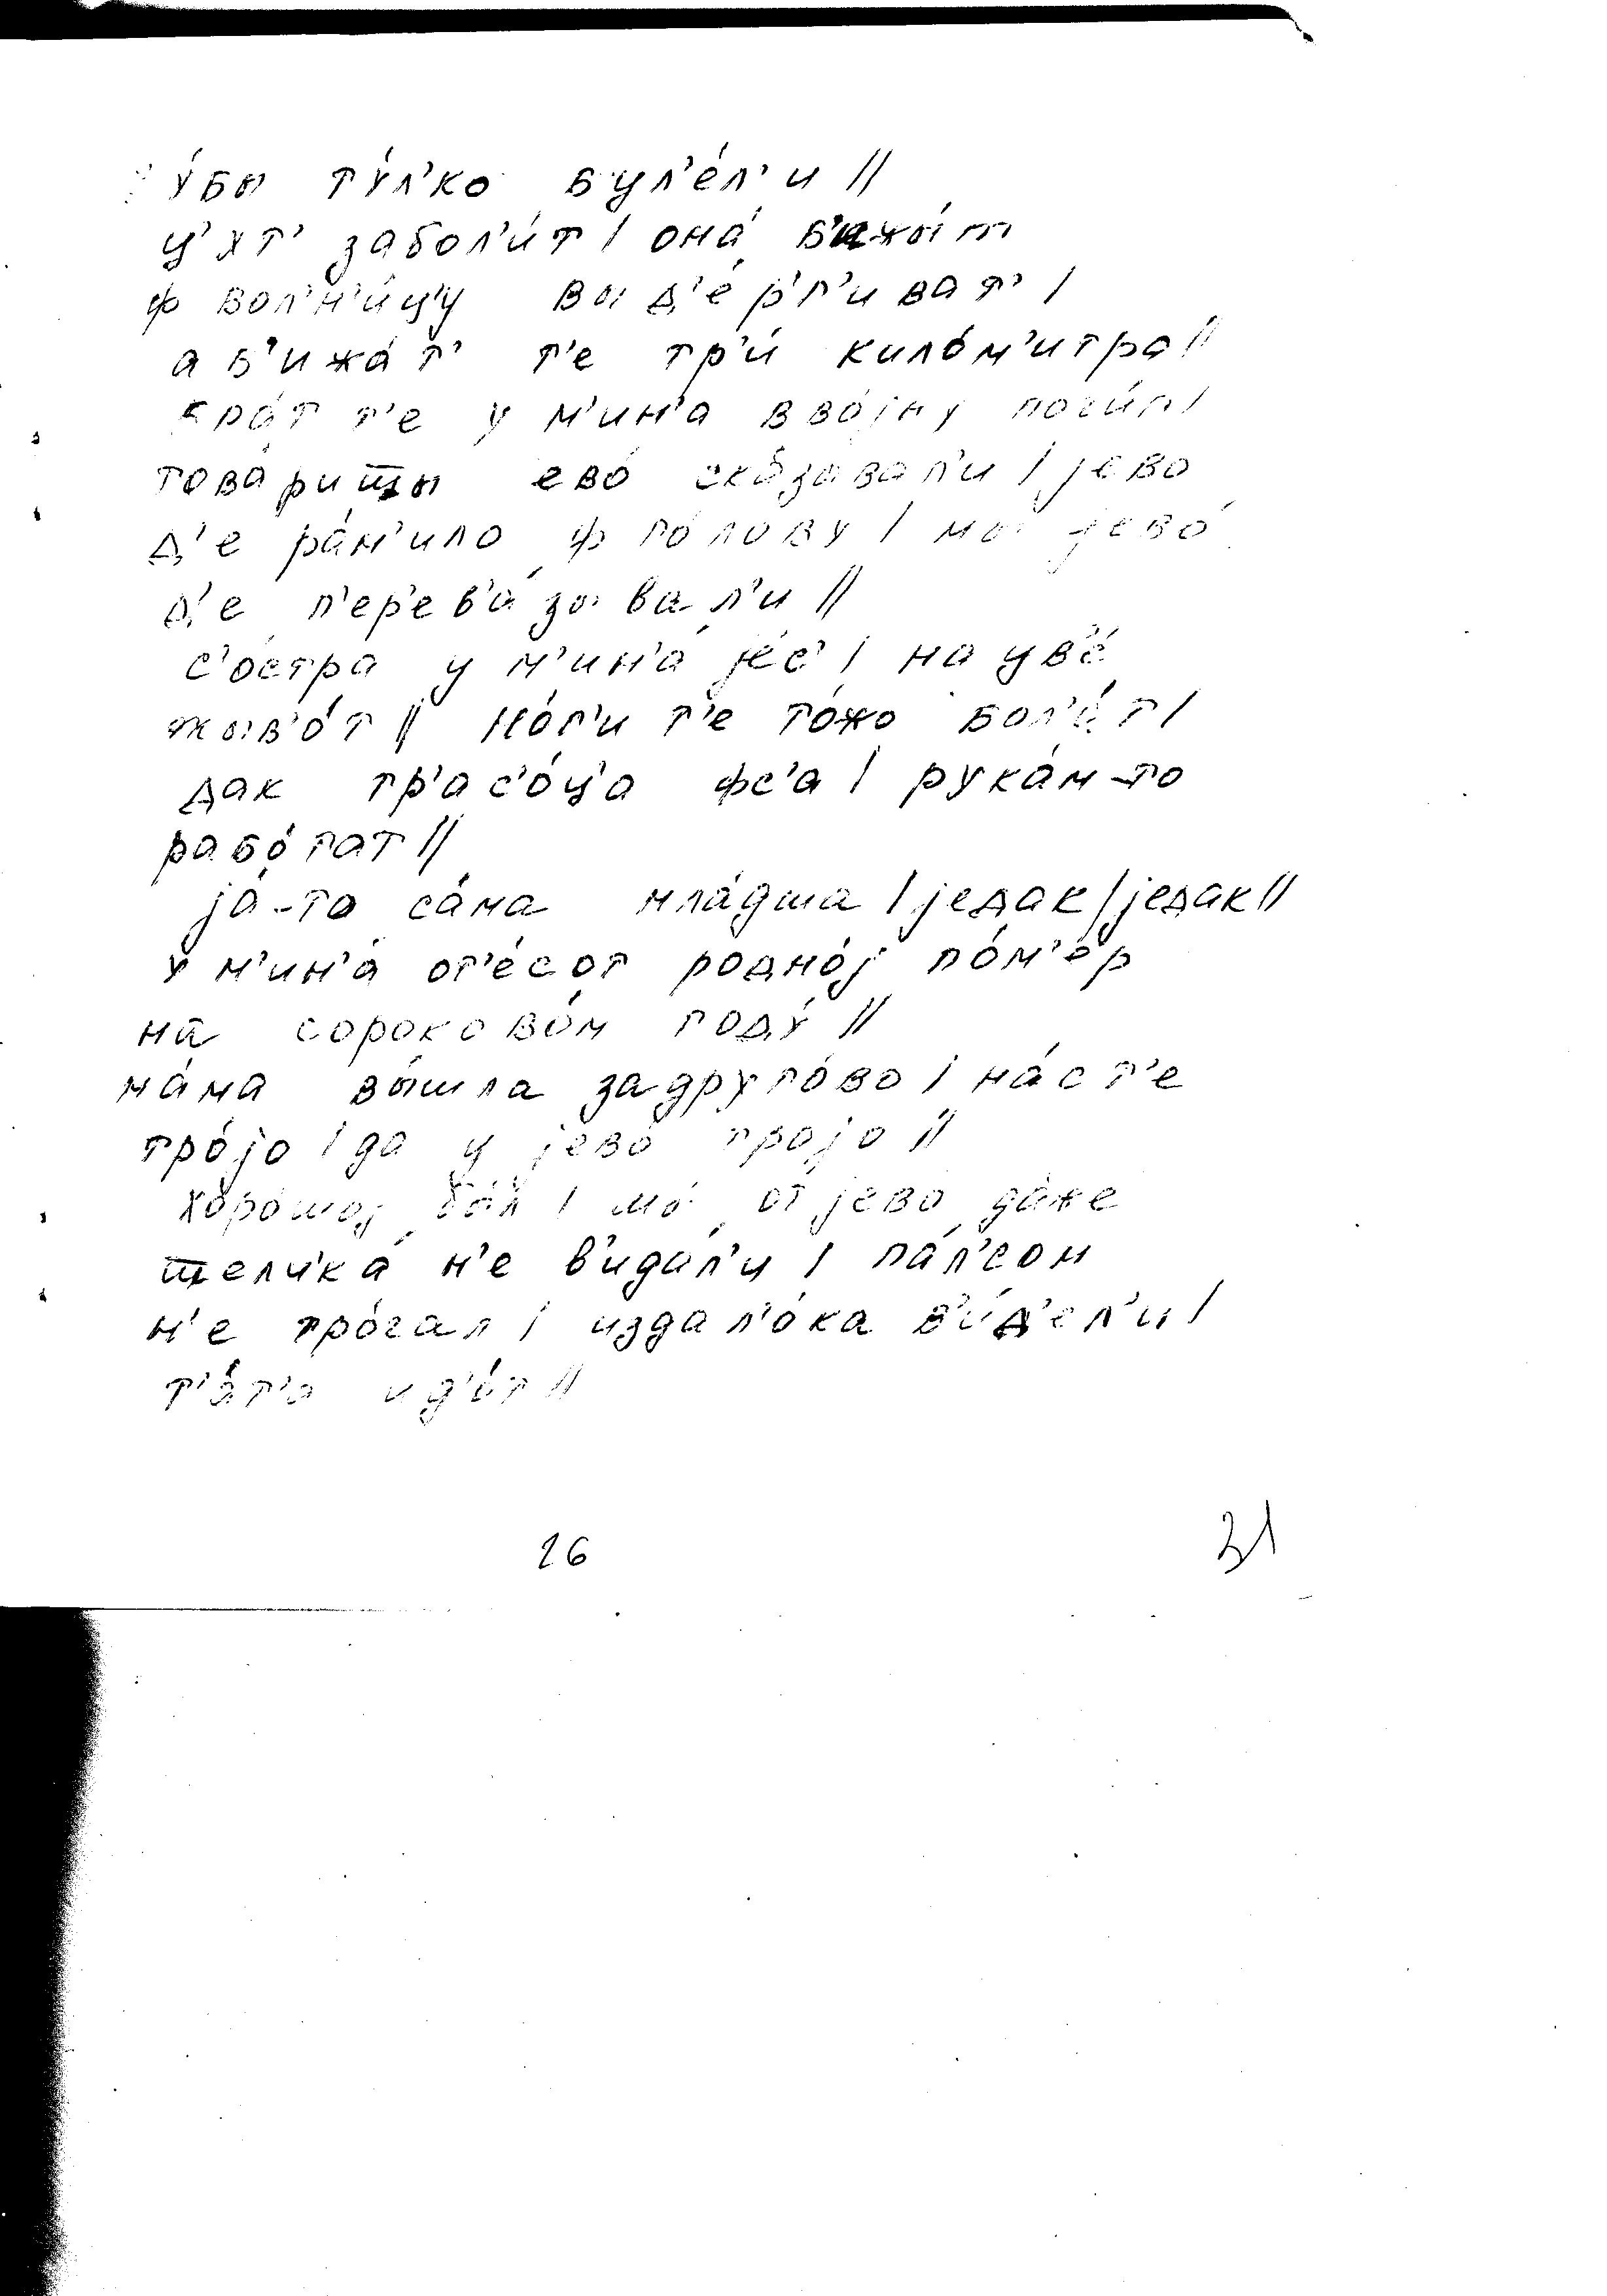 у́бы ту́л'ко бул'е́л'и //
ц'ут' забол'и́т / она́ б'ижы́т
ф бол'н'и́ц'у выд'е́рг'иват' /
а б'ижа́т' т'е тр'и́ кило́м'итра //
бра́т т'е у м'ин'а ввоjну поги́п /
това́рищы ево́ ска́зывал'и / jево
д'е ра́н'ило ф го́лову / мы jево́
д'е п'ер'ев'а́зывал'и //
с'остра у м'ин'а́ jе́с' / на ув'е́
жыв'о́т // но́г'и т'е то́жо бол'а́т /
дак тр'ас'о́ц'а фс'а / рука́м-то
рабо́тат //
jа́-то са́ма мла́дша / jедак / jедак //
у м'ин'а́ от'е́сот родно́j по́м'о́р
на сороково́м году́ //
ма́ма вы́шла за друго́во / на́с т'е
тро́jо / да у jево́ троjо //
хоро́шоj бы́л / мы от jево да́же
щелчка́ н'е в'ида́л'и / па́л'сом
н'е тро́гал / издал'о́ка в'и́д'ел'и /
т'а́т'а ид'о́т //
26
31